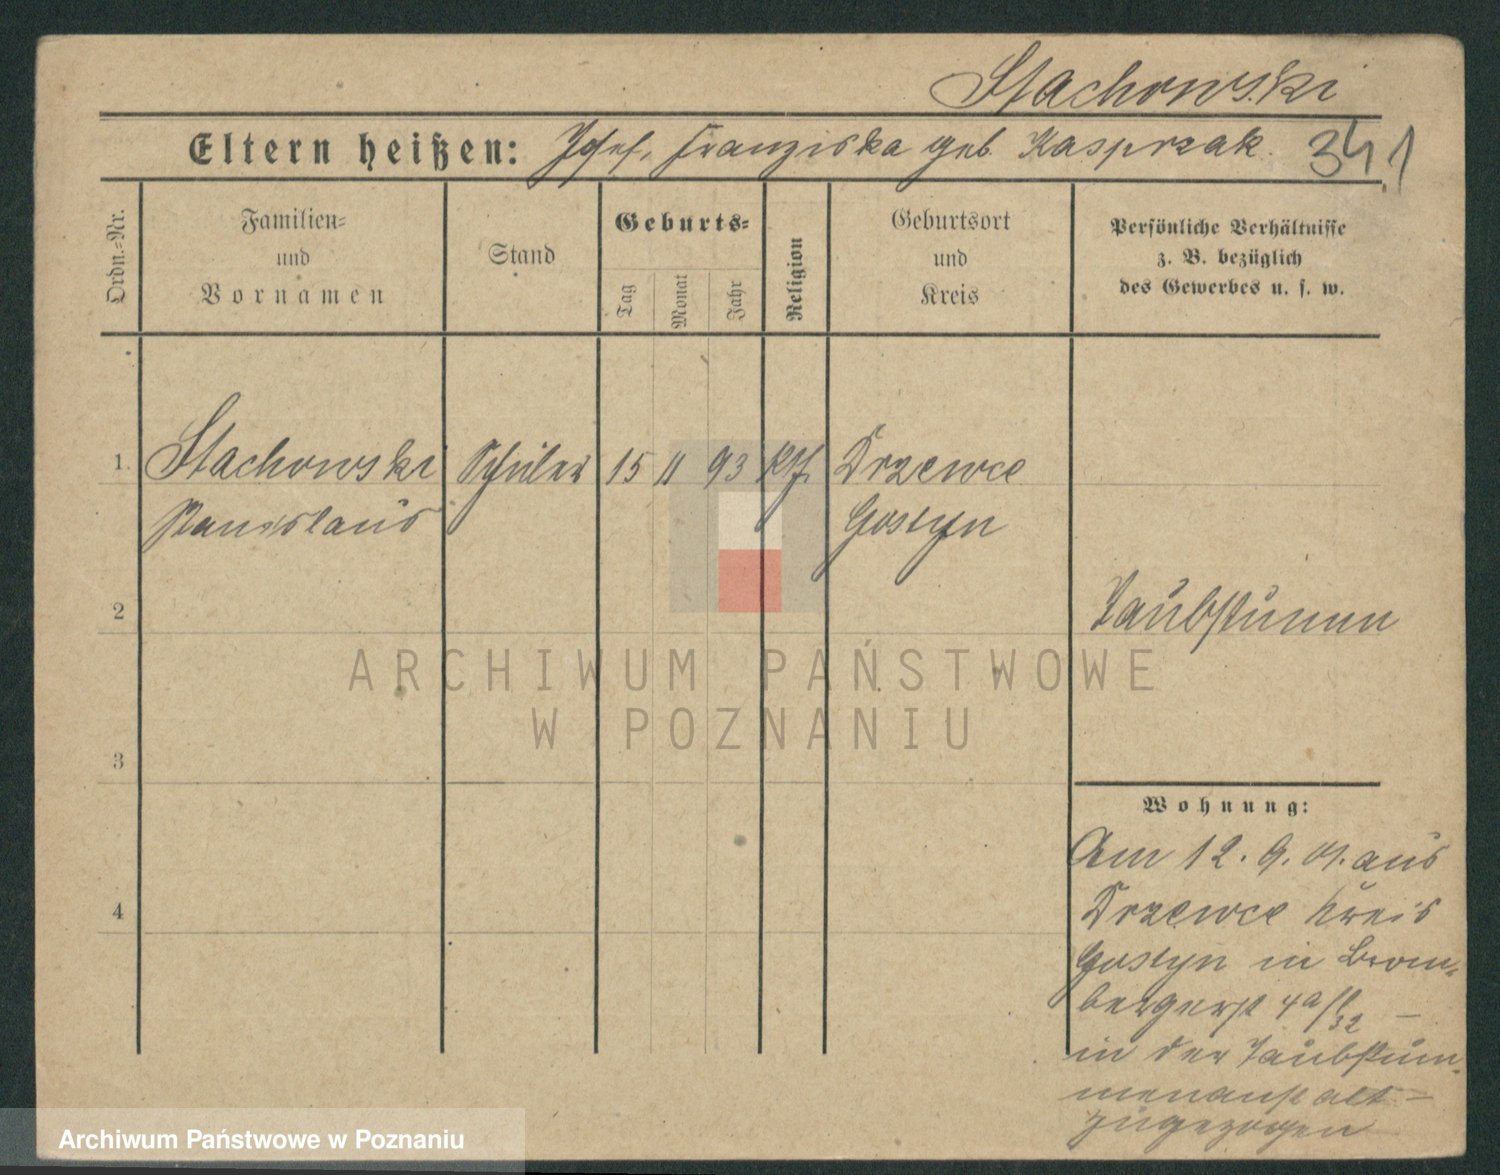 Stachowski
Eltern heißen: Josef, Franziska geb. Kasprzak. 341
Ordn.-Nr.
Familien-
und
Vornamen
Stand
Geburts-
Tag
Monat
Jahr
Religion
Geburtsort
und
Kreis
Persönliche Verhältnisse
z. B. bezüglich
des Gewerbes u. s. w.
1. Stachowski Schüler 15 11 93 kth. Drzewce
Stanislaus Gostyn
2
Taubstumm
ARCHIWUM PAŃSTWOWE
W POZNANIU
3
Wohnung:
Am 12. 9. 01. aus
Drzewce Kreis
4
Gostyn in Brom-
bergerst 4a/32 –
in der Taubstum-
menanstalt –
zugezogen
Archiwum Państwowe w Poznaniu